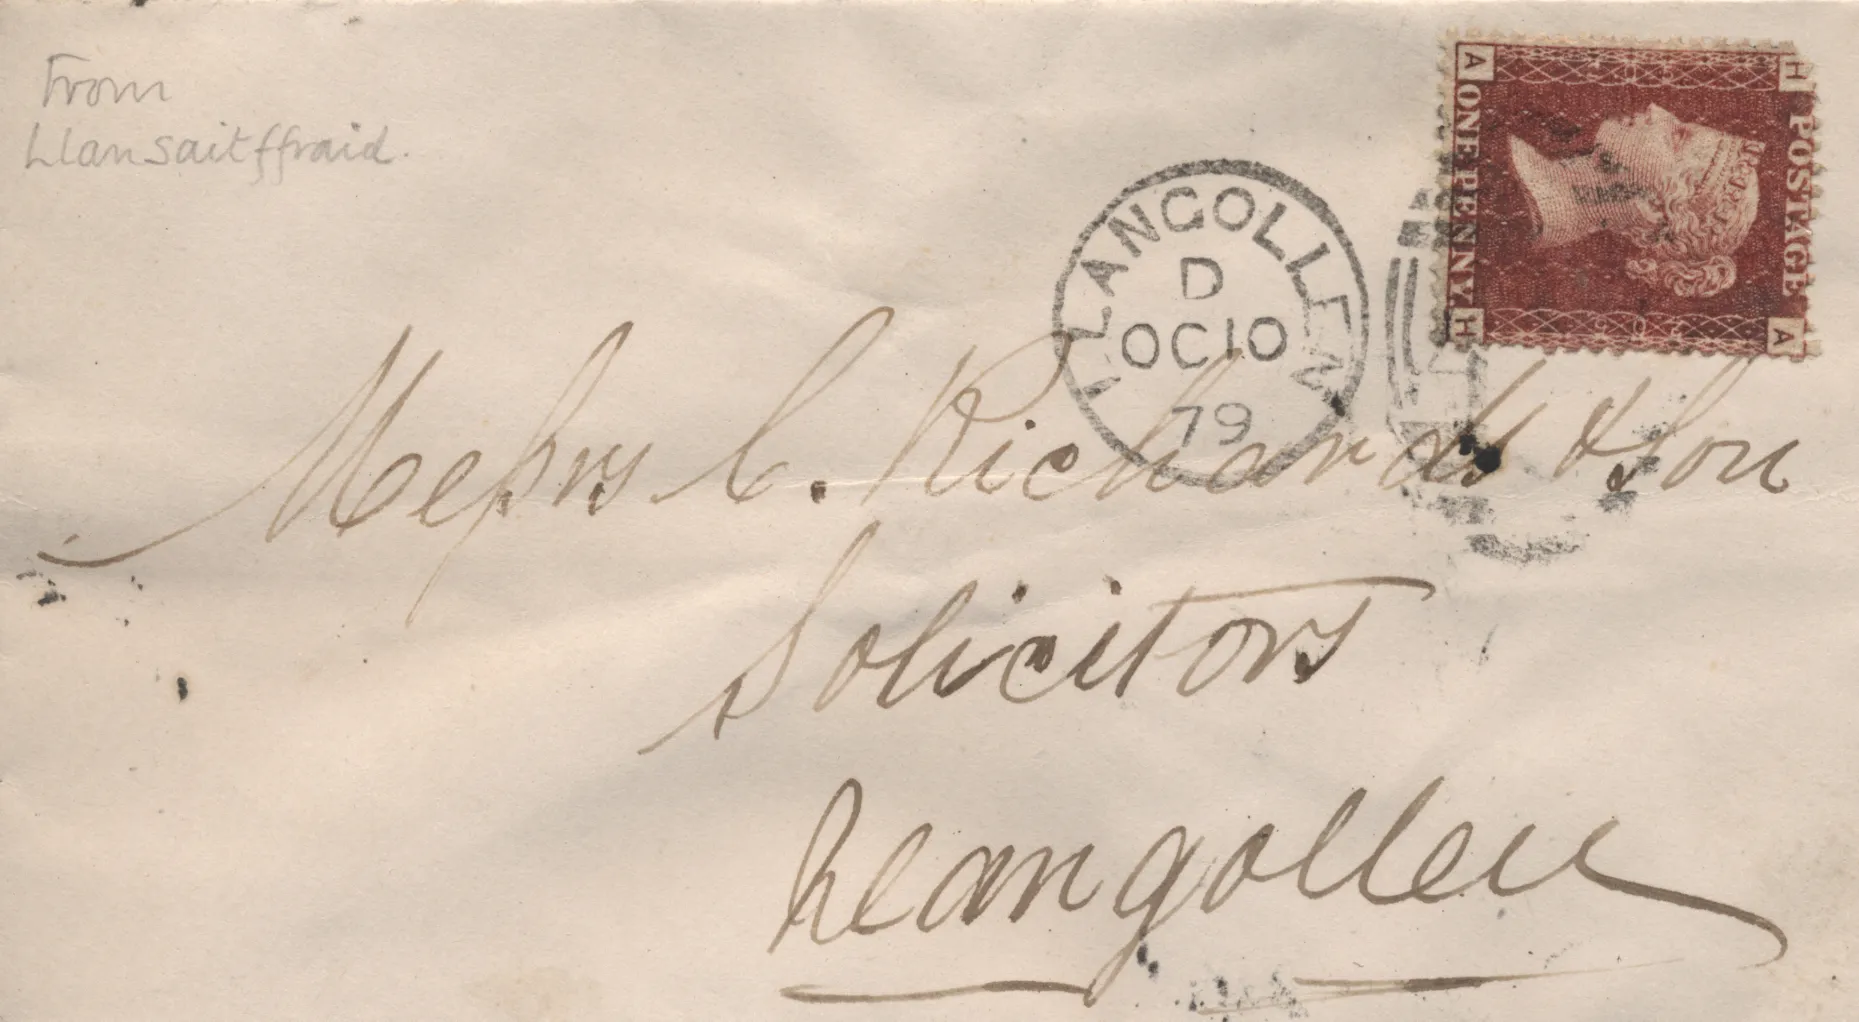 From
Llansaitffraid.
A
H
POSTAGE
ONE PENNY
H
A
LLANGOLLEN
D
OC 10
79
Messrs C. Richards & Son
Solicitors
Llangollen